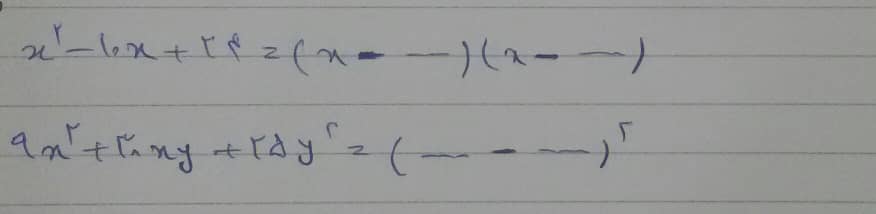 x² - ۱۰x + ۲۴ = (x - —)(x - —)
۹x² + ۳۰xy + ۲۵y² = (— - —)²